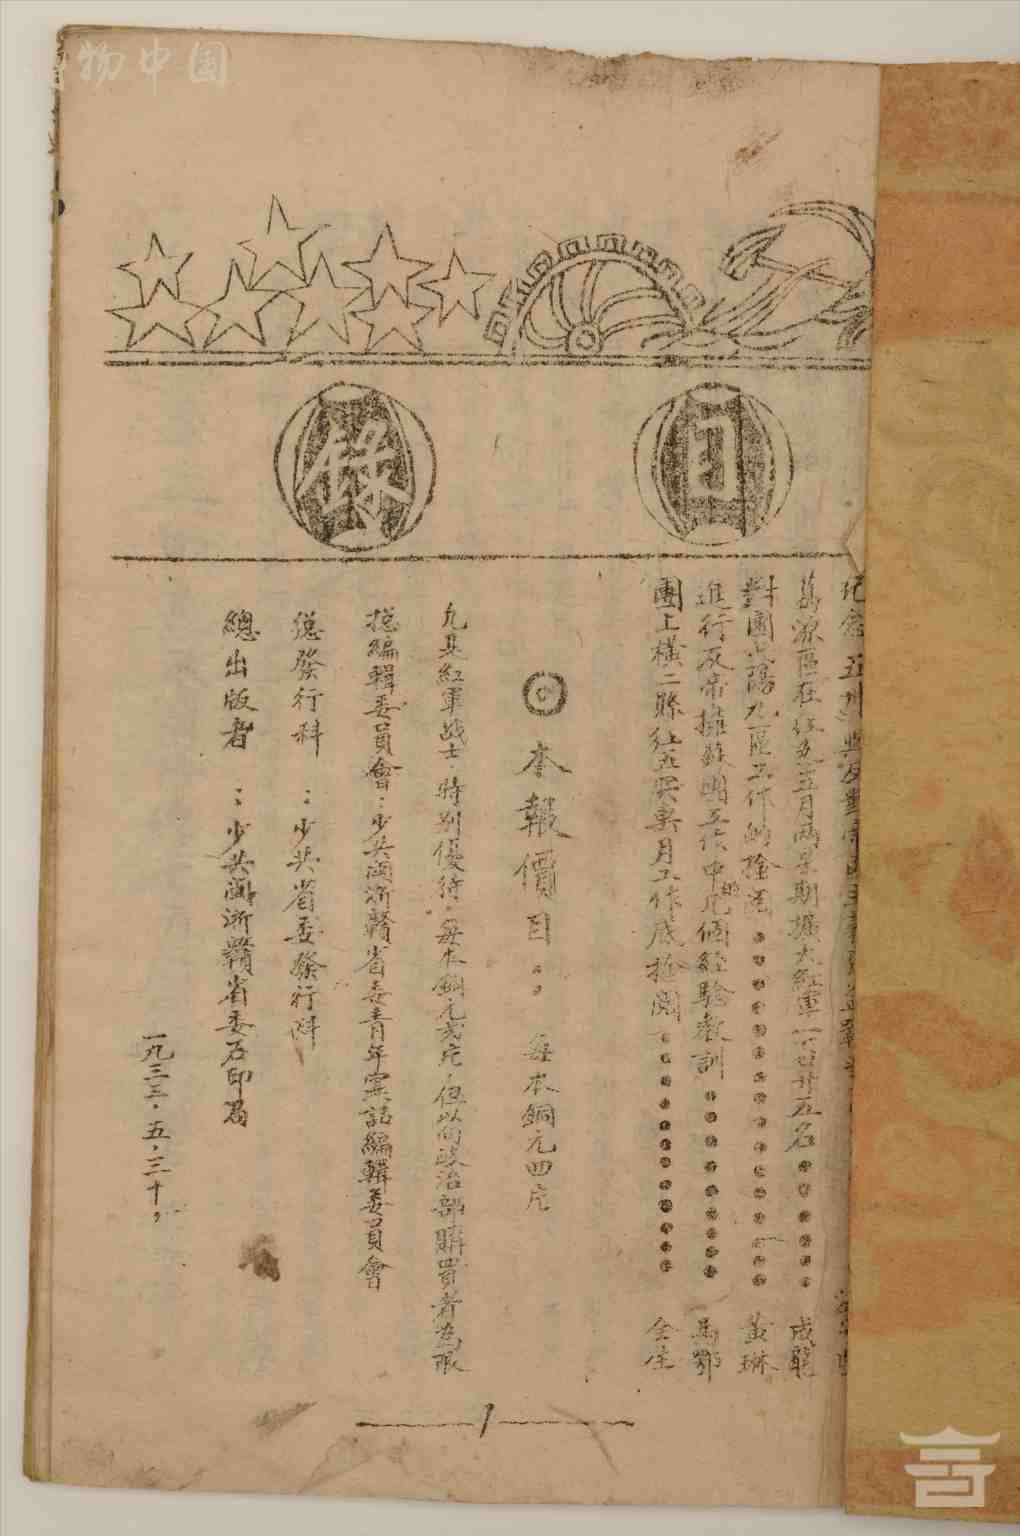 物中国
目錄
紀念五卅與反對帝國主義
葛源區在紅五
月兩星期擴大紅軍一百廿五名 成龍
對
陽九區工作的檢閱 黃琳
進行反帝擁蘇
工作中
幾個經驗教訓 馬鄂
團上橫二縣紅五
月工作底檢閱 全生
本報價目:每本銅元四片
凡是紅軍战士,特别優待,每本銅元弍片,但以向政治部購買者為限
總編輯委員會:少共閩浙贛省委青年實話編輯委員會
總發行科:少共省委發行科
總出版者:少共閩浙贛省委石印局
一九三三,五,三十,
1